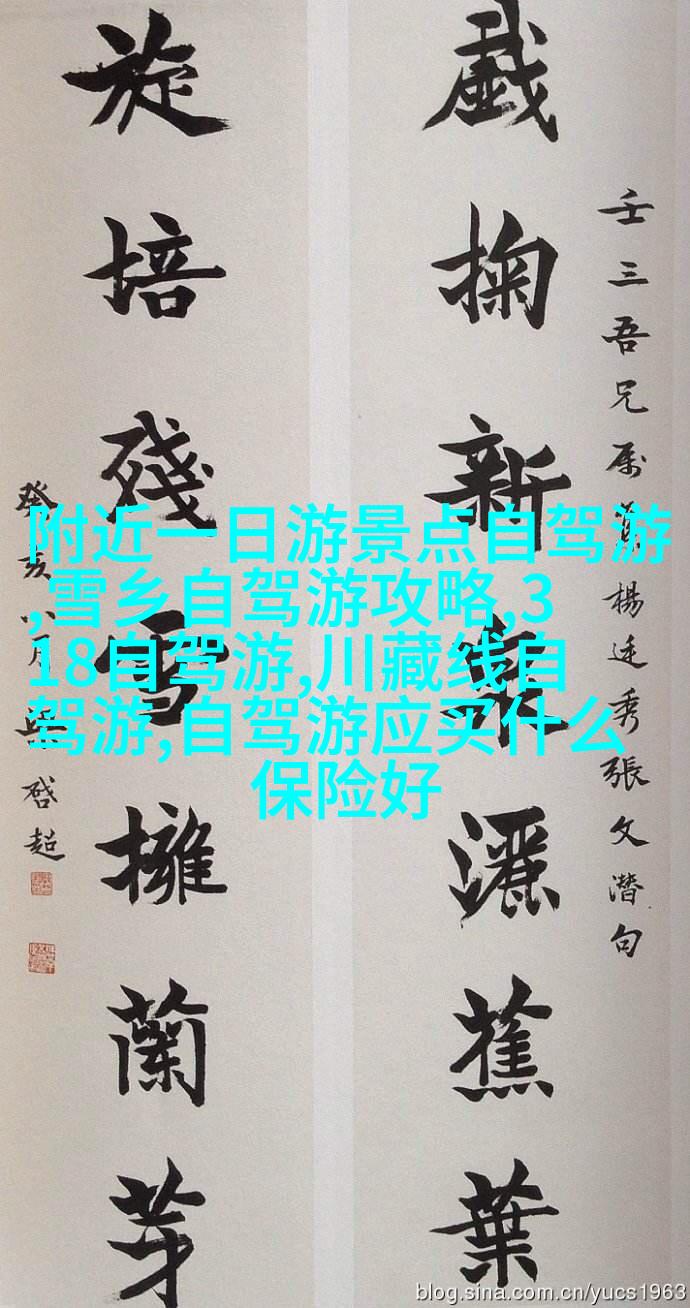 壬三吾兄属楊廷秀張文潛句
戱掬新泉灑蕉葉
旋培殘雪擁蘭芽
癸亥八月啓超
附近一日游景点自驾游
,雪乡自驾游攻略,3
18自驾游,川藏线自
驾游,自驾游应买什么
保险好
blog.sina.com.cn/yucs1963